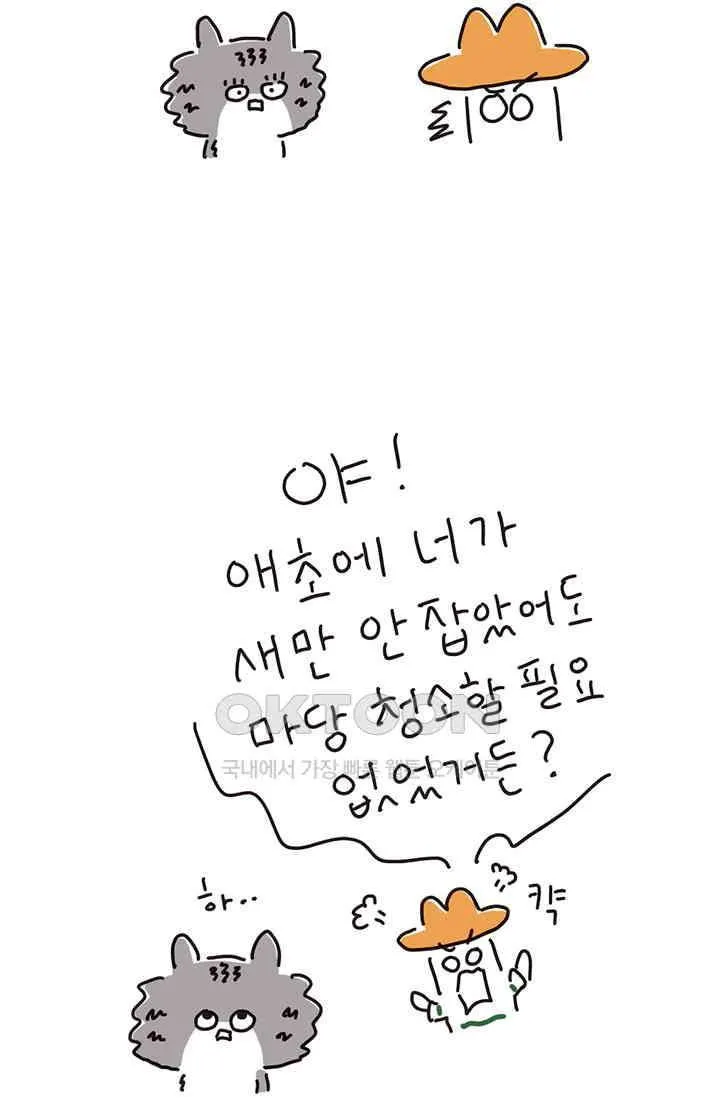 야!
애초에 너가
새만 안 잡았어도
마당 청소할 필요
없었거든?
OKTOON
국내에서 가장 빠른 웹툰 오케이툰
하..
캭